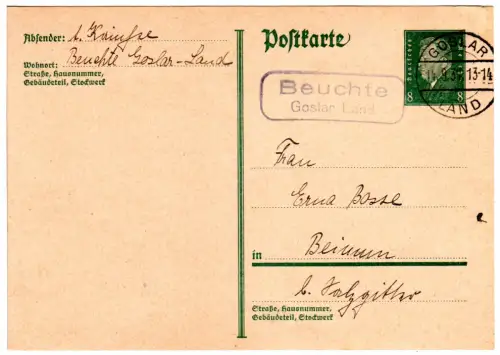 Absender:
Beuchte Goslar-Land
Wohnort:
Straße, Hausnummer,
Gebäudeteil, Stockwerk
Postkarte
Deutsches
8 8
GOSLAR
13-14
LAND
Beuchte
Goslar Land
Frau
Erna Bosse
in Beinum
b. Salzgitter
Straße, Hausnummer.
Gebäudeteil, Stockwerk